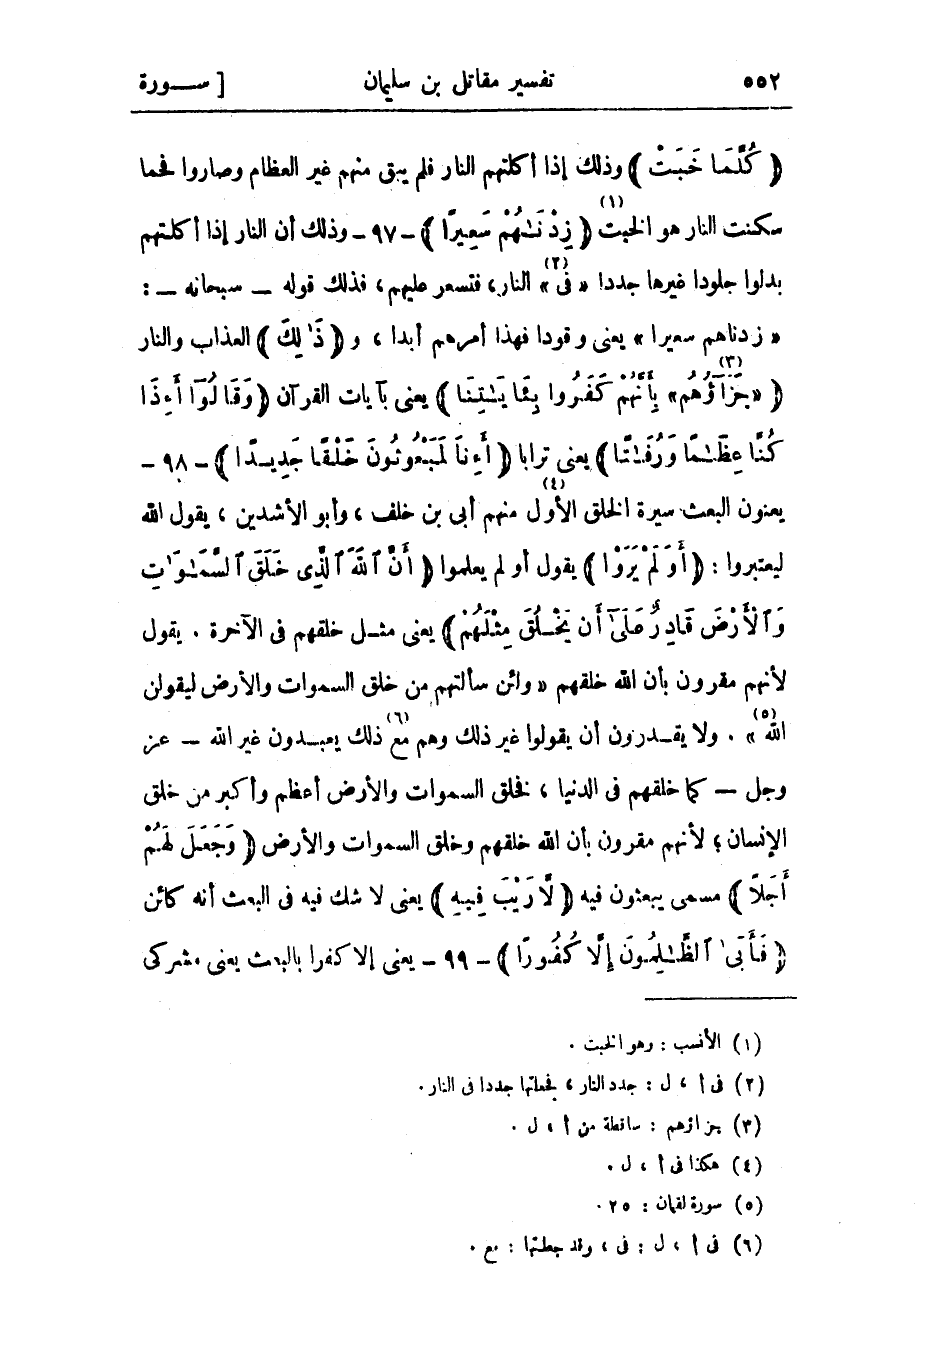 ٥٥٢ تفسير مقاتل بن سليمان [ ســـورة
﴿ كُلَّمَا خَبَتْ ﴾ وذلك إذا أكلتهم النار فلم يبق منهم غير العظام وصاروا فحما
سكنت النار هو الخبت (١) ﴿ زِدْنَـٰهُمْ سَعِيرًا ﴾ - ٩٧ - وذلك أن النار إذا أكلتهم
بدلوا جلودا غيرها جددا « فى » (٢) النار، فتسعر عليهم، فذلك قوله — سبحانه — :
« زدناهم سعيرا » يعنى وقودا فهذا أمرهم أبدا ، و ﴿ ذَٰلِكَ ﴾ العذاب والنار
﴿ «جَزَآؤُهُم» (٣) بِأَنَّهُمْ كَفَرُوا بِـَٔايَـٰتِنَا ﴾ يعنى بآيات القرآن ﴿ وَقَالُوٓا أَءِذَا
كُنَّا عِظَـٰمًا وَرُفَـٰتًا ﴾ يعنى ترابا ﴿ أَءِنَّا لَمَبْعُوثُونَ خَلْقًا جَدِيـدًا ﴾ - ٩٨ -
يعنون البعث سيرة الخلق الأول (٤) منهم أبى بن خلف ، وأبو الأشدين ، يقول الله
ليعتبروا : ﴿ أَوَلَمْ يَرَوْا ﴾ يقول أو لم يعلموا ﴿ أَنَّ ٱللَّهَ ٱلَّذِى خَلَقَ ٱلسَّمَـٰوَٰتِ
وَٱلْأَرْضَ قَادِرٌ عَلَىٰٓ أَن يَخْـلُقَ مِثْلَهُمْ ﴾ يعنى مثـل خلقهم فى الآخرة . يقول
لأنهم مقرون بأن الله خلقهم « ولئن سألتهم من خلق السموات والأرض ليقولن
الله » (٥) . ولا يقـدرون أن يقولوا غير ذلك وهم مع (٦) ذلك يعبـدون غير الله — عز
وجل — كما خلقهم فى الدنيا ، فخلق السموات والأرض أعظم وأكبر من خلق
الإنسان ؛ لأنهم مقرون بأن الله خلقهم وخلق السموات والأرض ﴿ وَجَعَلَ لَهُمْ
أَجَلًا ﴾ مسمى يبعثون فيه ﴿ لَّا رَيْبَ فِيـهِ ﴾ يعنى لا شك فيه فى البعث أنه كائن
﴿ فَأَبَى ٱلظَّـٰلِمُونَ إِلَّا كُفُورًا ﴾ - ٩٩ - يعنى إلا كفرا بالبعث يعنى مشركى
(١) الأنسب : وهو الخبت .
(٢) فى أ ، ل : جدد النار ، فجعلتها جددا فى النار .
(٣) جزاؤهم : ساقطة من أ ، ل .
(٤) هكذا فى أ ، ل .
(٥) سورة لقمان : ٢٥ .
(٦) فى أ ، ل : فى ، وقد جعلتها : مع .